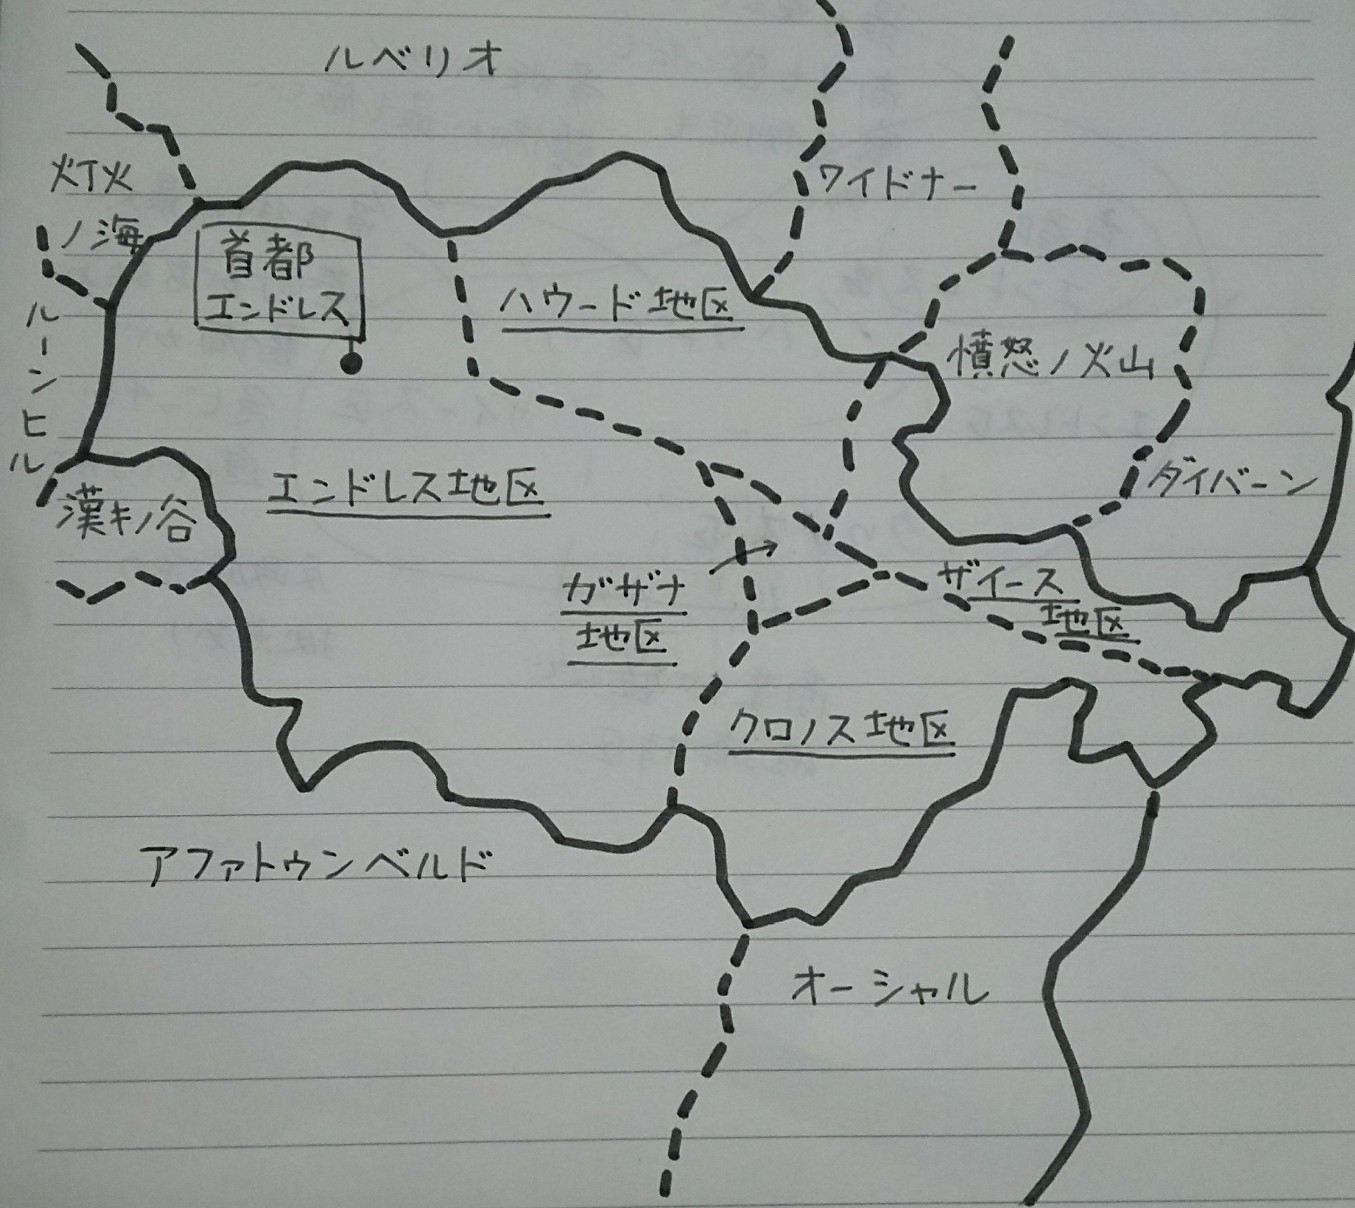 ルベリオ
灯火
ノ海
ワイドナー
首都
エンドレス
ハウード地区
ルーンヒル
憤怒ノ火山
エンドレス地区
ダイバーン
漢キノ谷
ガザナ
地区
ザイース
地区
クロノス地区
アファトゥンベルド
オーシャル